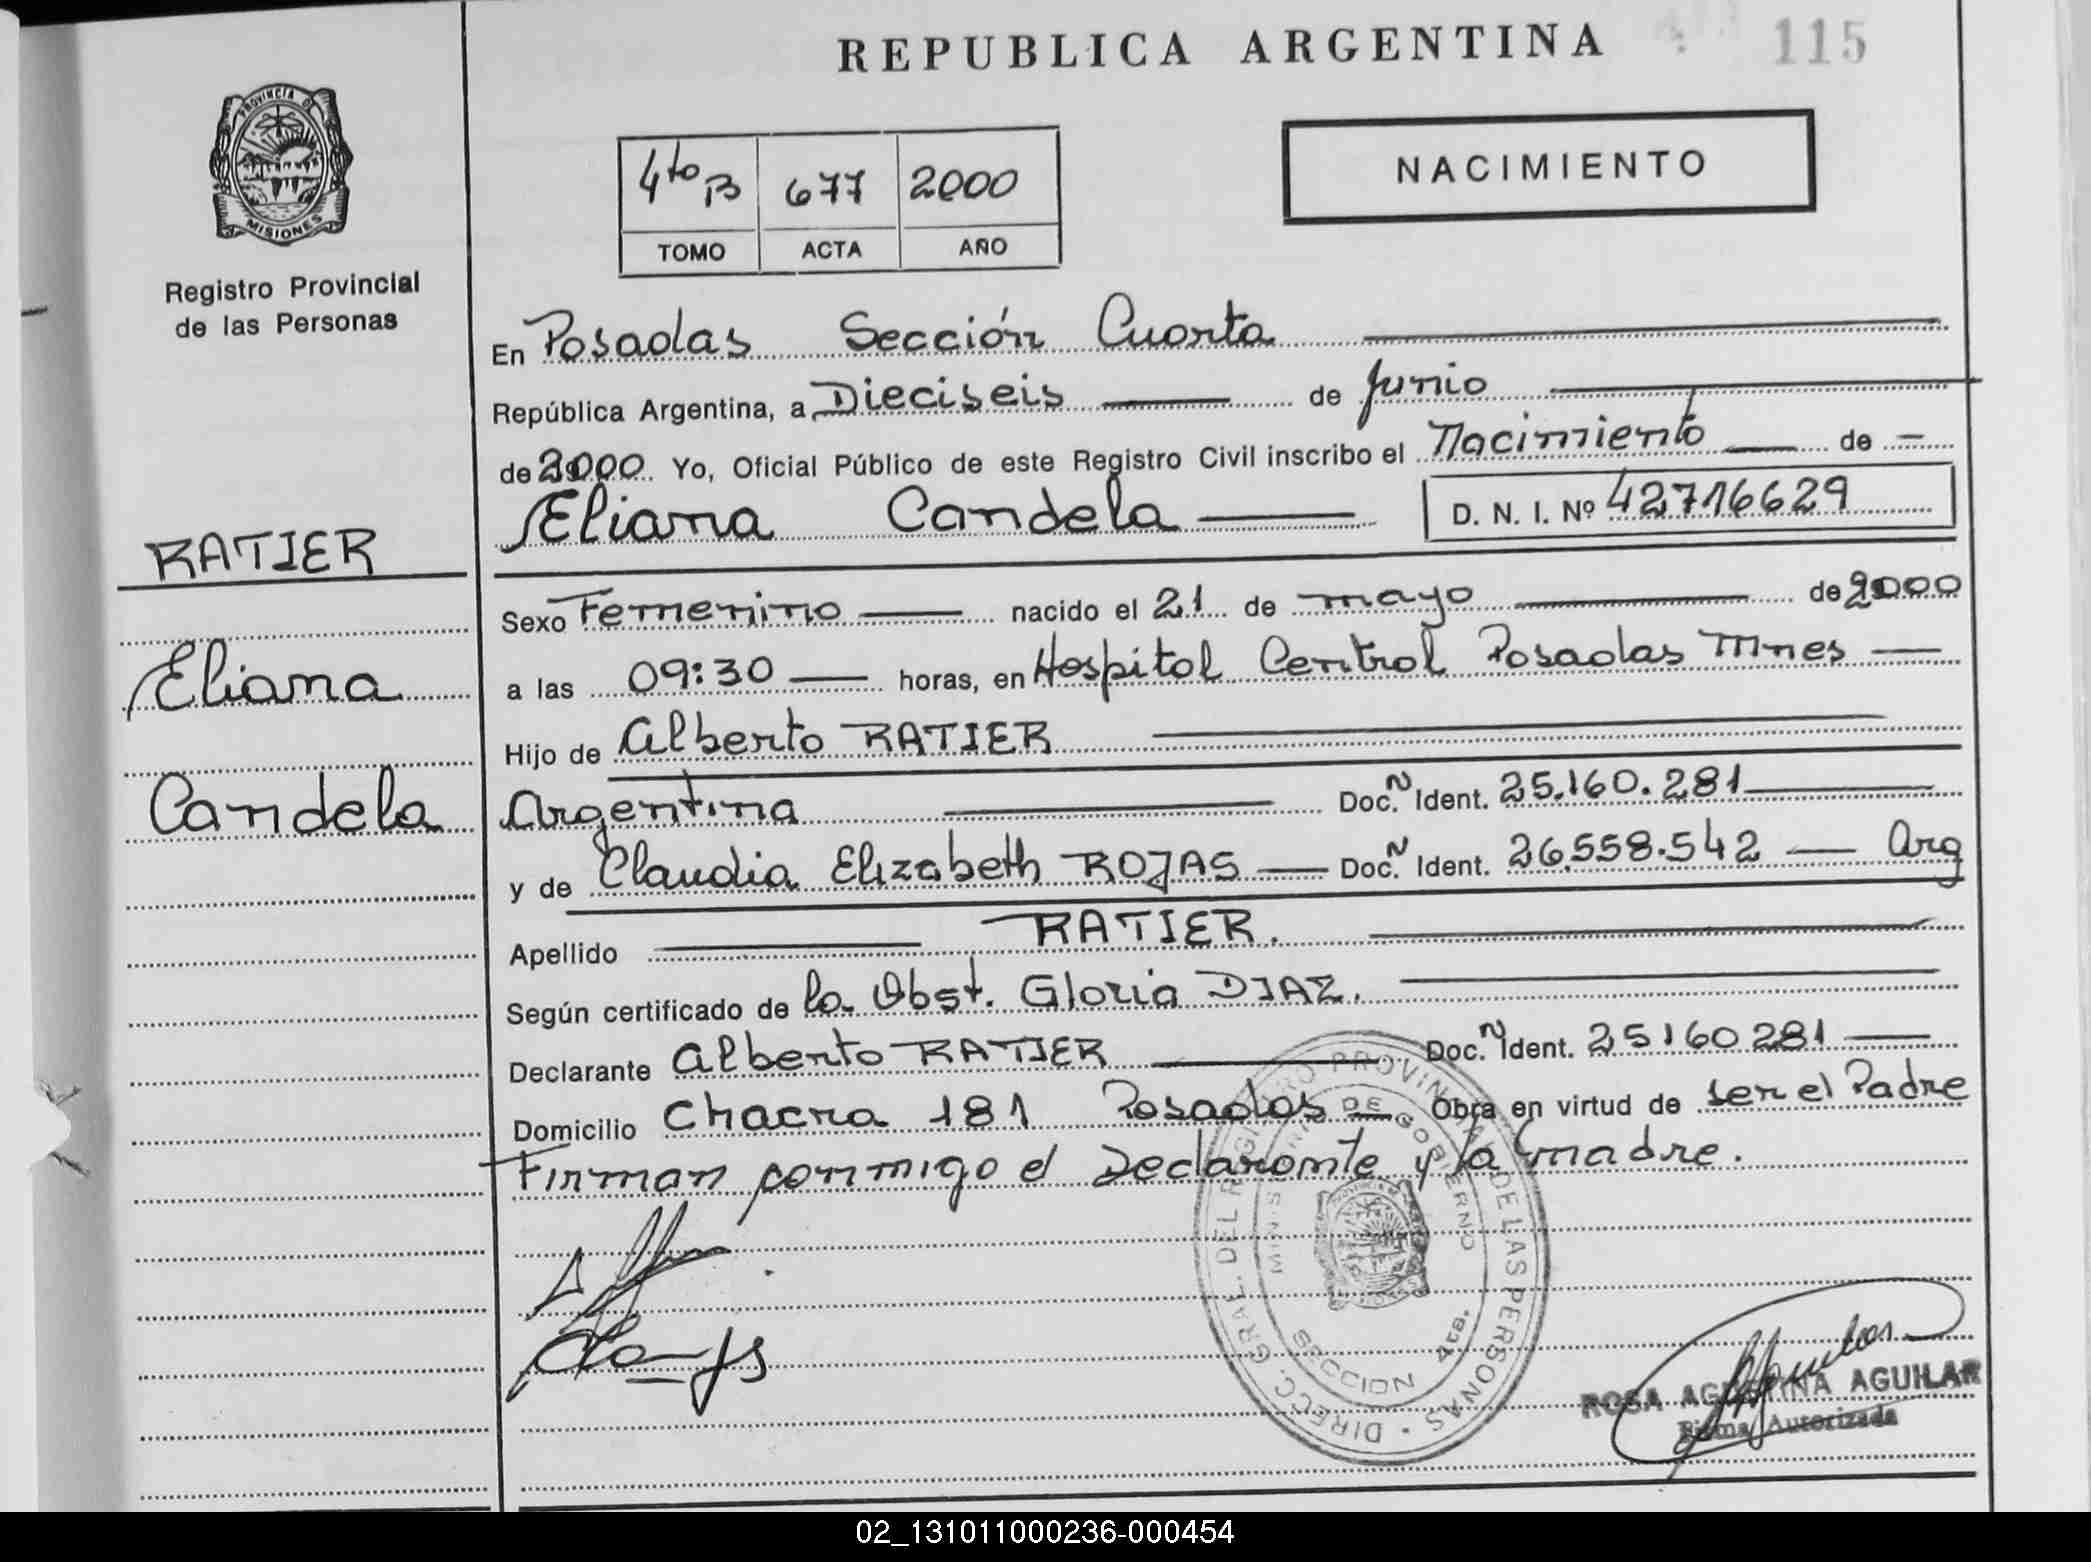 REPUBLICA ARGENTINA
115
PROVINCIA DE MISIONES
Registro Provincial
de las Personas
4to B 677 2000
TOMO ACTA AÑO
NACIMIENTO
En Posadas Sección Cuarta
República Argentina, a Dieciseis de Junio
de 2000 Yo, Oficial Público de este Registro Civil inscribo el Nacimiento de
Eliana Candela D. N. I. Nº 42716629
RATIER
Eliana
Candela
Sexo Femenino nacido el 21 de mayo de 2000
a las 09:30 horas, en Hospital Central Posadas Mnes
Hijo de Alberto RATIER
Argentina Doc. N Ident. 25.160.281
y de Claudia Elizabeth ROJAS Doc. N Ident. 26.558.542 Arg
Apellido RATIER.
Según certificado de la Obst. Gloria DIAZ.
Declarante Alberto RATIER Doc. N Ident. 25160281
Domicilio Chacra 181 Posadas Obra en virtud de ser el Padre
Firman conmigo el Declarante y la madre.
DIRECC. GRAL. DEL REGISTRO PROVINCIAL DE LAS PERSONAS
MINISTERIO DE GOBIERNO
SECCION 4ta.
ROSA AGUSTINA AGUILAR
Firma Autorizada
02_131011000236-000454